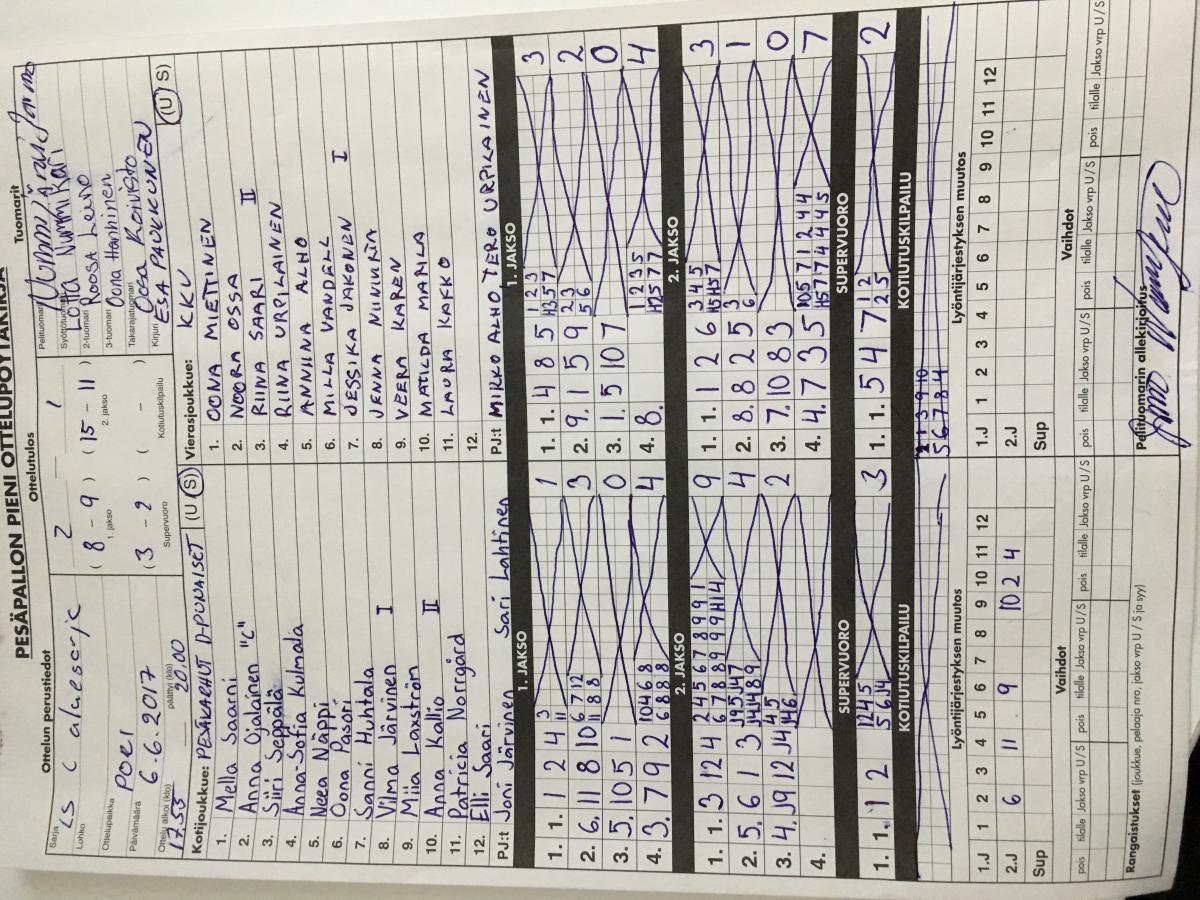 PESÄPALLON PIENI OTTELUPÖYTÄKIRJA
Ottelun perustiedot
Sarja LS C aluesarja
Lohko
Ottelupaikka PORI
Päivämäärä 6.6.2017
Ottelu alkoi (klo) 17.55 päättyi (klo) 20.00
Ottelutulos
2 - 1
( 8 - 9 ) ( 15 - 11 )
1. jakso 2. jakso
( 3 - 2 ) ( - )
Supervuoro Kotiutuskilpailu
Tuomarit
Pelituomari
Syöttötuomari Lotta Nummikari
2-tuomari Roosa Leivo
3-tuomari Oona Hanhinen
Takarajatuomari Oosa Koivisto
Kirjuri ESA PAUKKUNEN
Kotijoukkue: PESÄKARHUT D-PUNAISET (U S)
1. Mella Saarni
2. Anna Ojalainen "C"
3. Siiri Seppälä
4. Anna-Sofia Kulmala
5. Neea Näppi
6. Oona Pasori
7. Sanni Huhtala
8. Vilma Järvinen I
9. Miia Laaström
10. Anna Kallio II
11. Patricia Norrgård
12. Elli Saari
PJ:t Joni Järvinen Sari Lahtinen
Vierasjoukkue: KKV (U S)
1. OONA MIETTINEN
2. NOORA OSSA
3. RIINA SAARI II
4. RIINA URPILAINEN
5. ANNIINA ALHO
6. MILLA VANDELL
7. JESSIKA JAKONEN I
8. JENNA NINIVIRTA
9. VEERA KAREN
10. MATILDA MARILA
11. LAURA KAKKO
12.
PJ:t MIRKO ALHO, TERO URPILAINEN
1. JAKSO
1. 1. 1 2 4 3 11 1
2. 6. 11 8 10 6 7 12 11 8 8 3
3. 5. 10 5 1 0
4. 3. 7 9 2 10 4 6 8 6 8 8 8 4
2. JAKSO
1. 1. 3 12 4 2 4 5 6 7 8 9 9 1 6 7 8 8 9 9 H 1 4 9
2. 5. 6 1 3 4
3. 4. J9 12 J4 4 5 J4 6 2
4.
SUPERVUORO
1. 1. 1 2 1 2 4 5 5 6 J4 3
KOTIUTUSKILPAILU
1. JAKSO
1. 1. 4 8 5 1 2 3 H3 5 7 3
2. 9. 1 5 9 2 3 5 6 2
3. 1. 5 10 7 0
4. 8. 1 2 3 5 H2 5 7 7 4
2. JAKSO
1. 1. 1 2 6 3 4 5 H5 H5 7 3
2. 8. 8 2 5 3 6 1
3. 7. 10 8 3 0
4. 4. 7 3 5 7
SUPERVUORO
1. 1. 5 4 7 1 2 2 5 2
KOTIUTUSKILPAILU
5 6 7 8 J4
Lyöntijärjestyksen muutos
1.J 1 2 3 4 5 6 7 8 9 10 11 12
2.J 6 11 9 10 2 4
Sup
Vaihdot
pois tilalle Jakso vrp U/S pois tilalle Jakso vrp U/S pois tilalle Jakso vrp U/S
Lyöntijärjestyksen muutos
1.J 1 2 3 4 5 6 7 8 9 10 11 12
2.J
Sup
Vaihdot
pois tilalle Jakso vrp U/S pois tilalle Jakso vrp U/S pois tilalle Jakso vrp U/S
Rangaistukset (joukkue, pelaaja nro, jakso vrp U / S ja syy)
Pelituomarin allekirjoitus